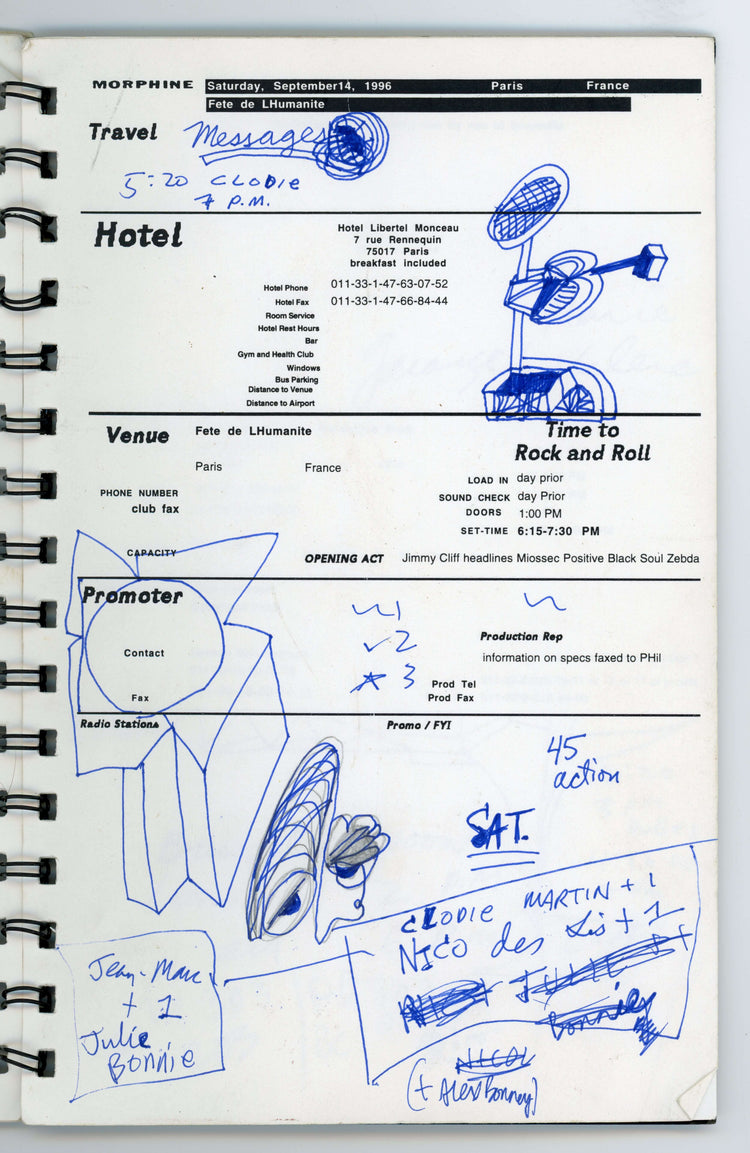 MORPHINE Saturday, September14, 1996 Paris France
Fete de LHumanite
Travel Messages
5:20 CLODIE
7 P.M.
Hotel
Hotel Libertel Monceau
7 rue Rennequin
75017 Paris
breakfast included
Hotel Phone 011-33-1-47-63-07-52
Hotel Fax 011-33-1-47-66-84-44
Room Service
Hotel Rest Hours
Bar
Gym and Health Club
Windows
Bus Parking
Distance to Venue
Distance to Airport
Venue Fete de LHumanite
Paris France
PHONE NUMBER
club fax
CAPACITY
Time to
Rock and Roll
LOAD IN day prior
SOUND CHECK day Prior
DOORS 1:00 PM
SET-TIME 6:15-7:30 PM
OPENING ACT Jimmy Cliff headlines Miossec Positive Black Soul Zebda
Promoter
Contact
Fax
1
2
3
Production Rep
information on specs faxed to PHil
Prod Tel
Prod Fax
Radio Stations
Promo / FYI
45
action
SAT.
CLODIE MARTIN + 1
NICO des Lis + 1
Julie
Bonnie
NICOL
(+ Alex Bonney)
Jean-Marc
+ 1
Julie
BONNIE